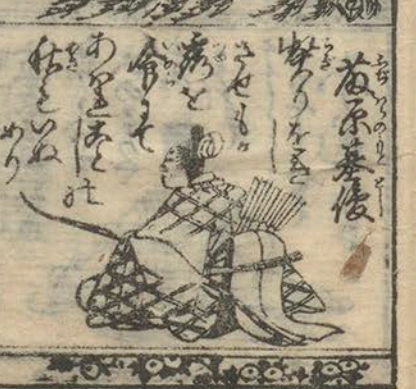 藤原基俊
契りをきし
させもが
露を
命にて
あはれことしの
秋もいぬ
めり